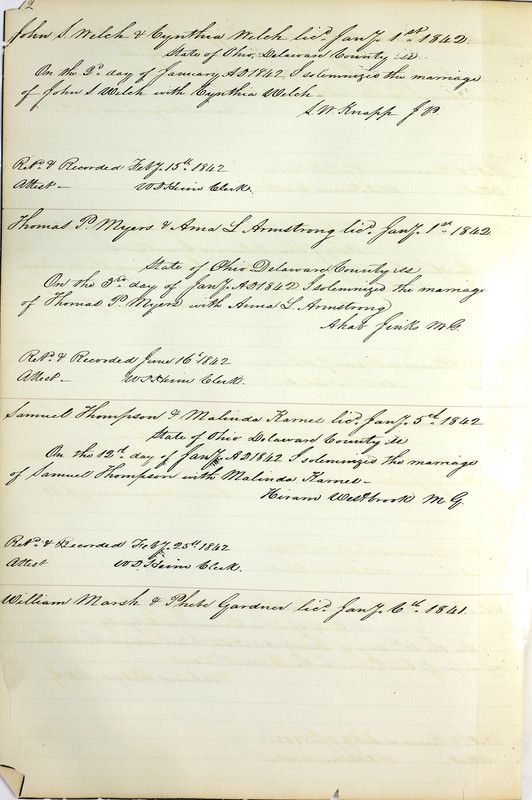 12
John S. Welch & Cynthia Welch lic'd Jan'y. 1st 1842.
State of Ohio, Delaware County ss
On the 2d. day of January A.D. 1842 I solemnized the marriage
of John S Welch with Cynthia Welch –
S. W. Knapp J P.
Ret'd. & Recorded Feb'y. 15th. 1842
Attest – W. D. Heim Clerk.
Thomas P. Myers & Ama L Armstrong lic'd Jan'y. 1st 1842
State of Ohio Delaware County ss
On the 3rd. day of Jan'y. A.D 1842 I solemnized the marriage
of Thomas P. Myers with Anna L. Armstrong
Ahab Jinks M. G.
Ret'd. & Recorded June 16th 1842
Attest – W. D. Heim Clerk.
Samuel Thompson & Malinda Karnes lic'd. Jan'y. 5th. 1842
State of Ohio Delaware County ss
On the 12th. day of Jan'y. A.D 1842 I solemnized the marriage
of Samuel Thompson with Malinda Karnes –
Hiram Westbrook M. G.
Ret'd. & Recorded Feb'y. 25th 1842
Attest W. D. Heim Clerk.
William Marsh & Phebe Gardner lic'd. Jan'y. 6th. 1841.